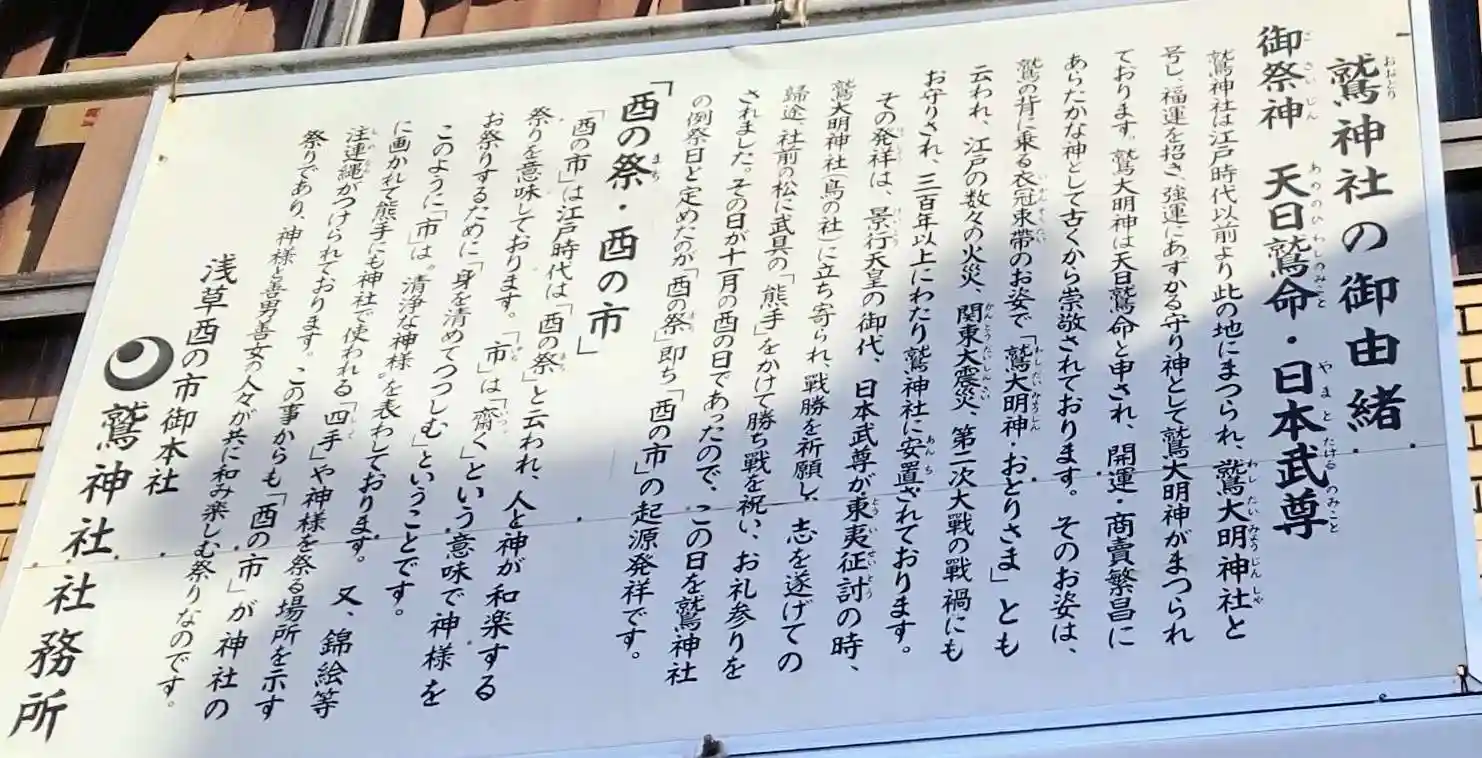 鷲神社の御由緒
御祭神　天日鷲命・日本武尊
鷲神社は江戸時代以前より此の地にまつられ、鷲大明神社と
号し、福運を招き、強運にあずかる守り神として鷲大明神がまつられ
ております。鷲大明神は天日鷲命と申され、開運・商賣繁昌に
あらたかな神として古くから崇敬されております。そのお姿は、
鷲の背に乗る衣冠束帯のお姿で「鷲大明神・おとりさま」とも
云われ、江戸の数々の火災、関東大震災、第二次大戰の戰禍にも
お守りされ、三百年以上にわたり鷲神社に安置されております。
その発祥は、景行天皇の御代、日本武尊が東夷征討の時、
鷲大明神社（鳥の社）に立ち寄られ、戰勝を祈願し、志を遂げての
歸途、社前の松に武具の「熊手」をかけて勝ち戰を祝い、お礼参りを
されました。その日が十一月の酉の日であったので、この日を鷲神社
の例祭日と定めたのが「酉の祭」即ち「酉の市」の起源発祥です。
「酉の祭・酉の市」
「酉の市」は江戸時代は「酉の祭」と云われ、人と神が和楽する
祭りを意味しております。「市」は「齋く」という意味で神様を
お祭りするために「身を清めてつつしむ」ということです。
このように「市」は“清浄な神様”を表わしております。又、錦絵等
に画かれて熊手にも神社で使われる「四手」や神様を祭る場所を示す
注連縄がつけられております。この事からも「酉の市」が神社の
祭りであり、神様と善男善女の人々が共に和み楽しむ祭りなのです。
浅草酉の市御本社
鷲神社社務所